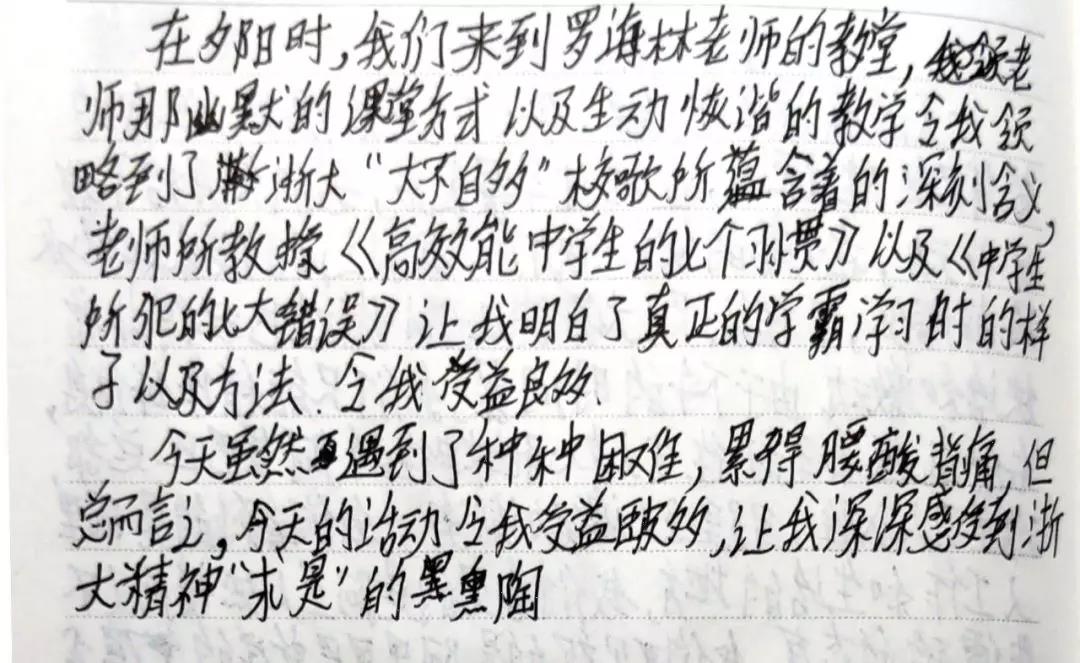 在夕阳时,我们来到罗海林老师的教堂,老
师那幽默的课堂方式以及生动恢谐的教学令我领
略到了浙大“大不自多”校歌所蕴含着的深刻含义,
老师所教《高效能中学生的七个习惯》以及《中学生
所犯的七大错误》让我明白了真正的学霸学习时的样
子以及方法.令我受益良效.
今天虽然遇到了种种困难,累得腰酸背痛,但
总而言之,今天的活动令我受益效,让我深深感受到浙
大精神“求是”的熏陶